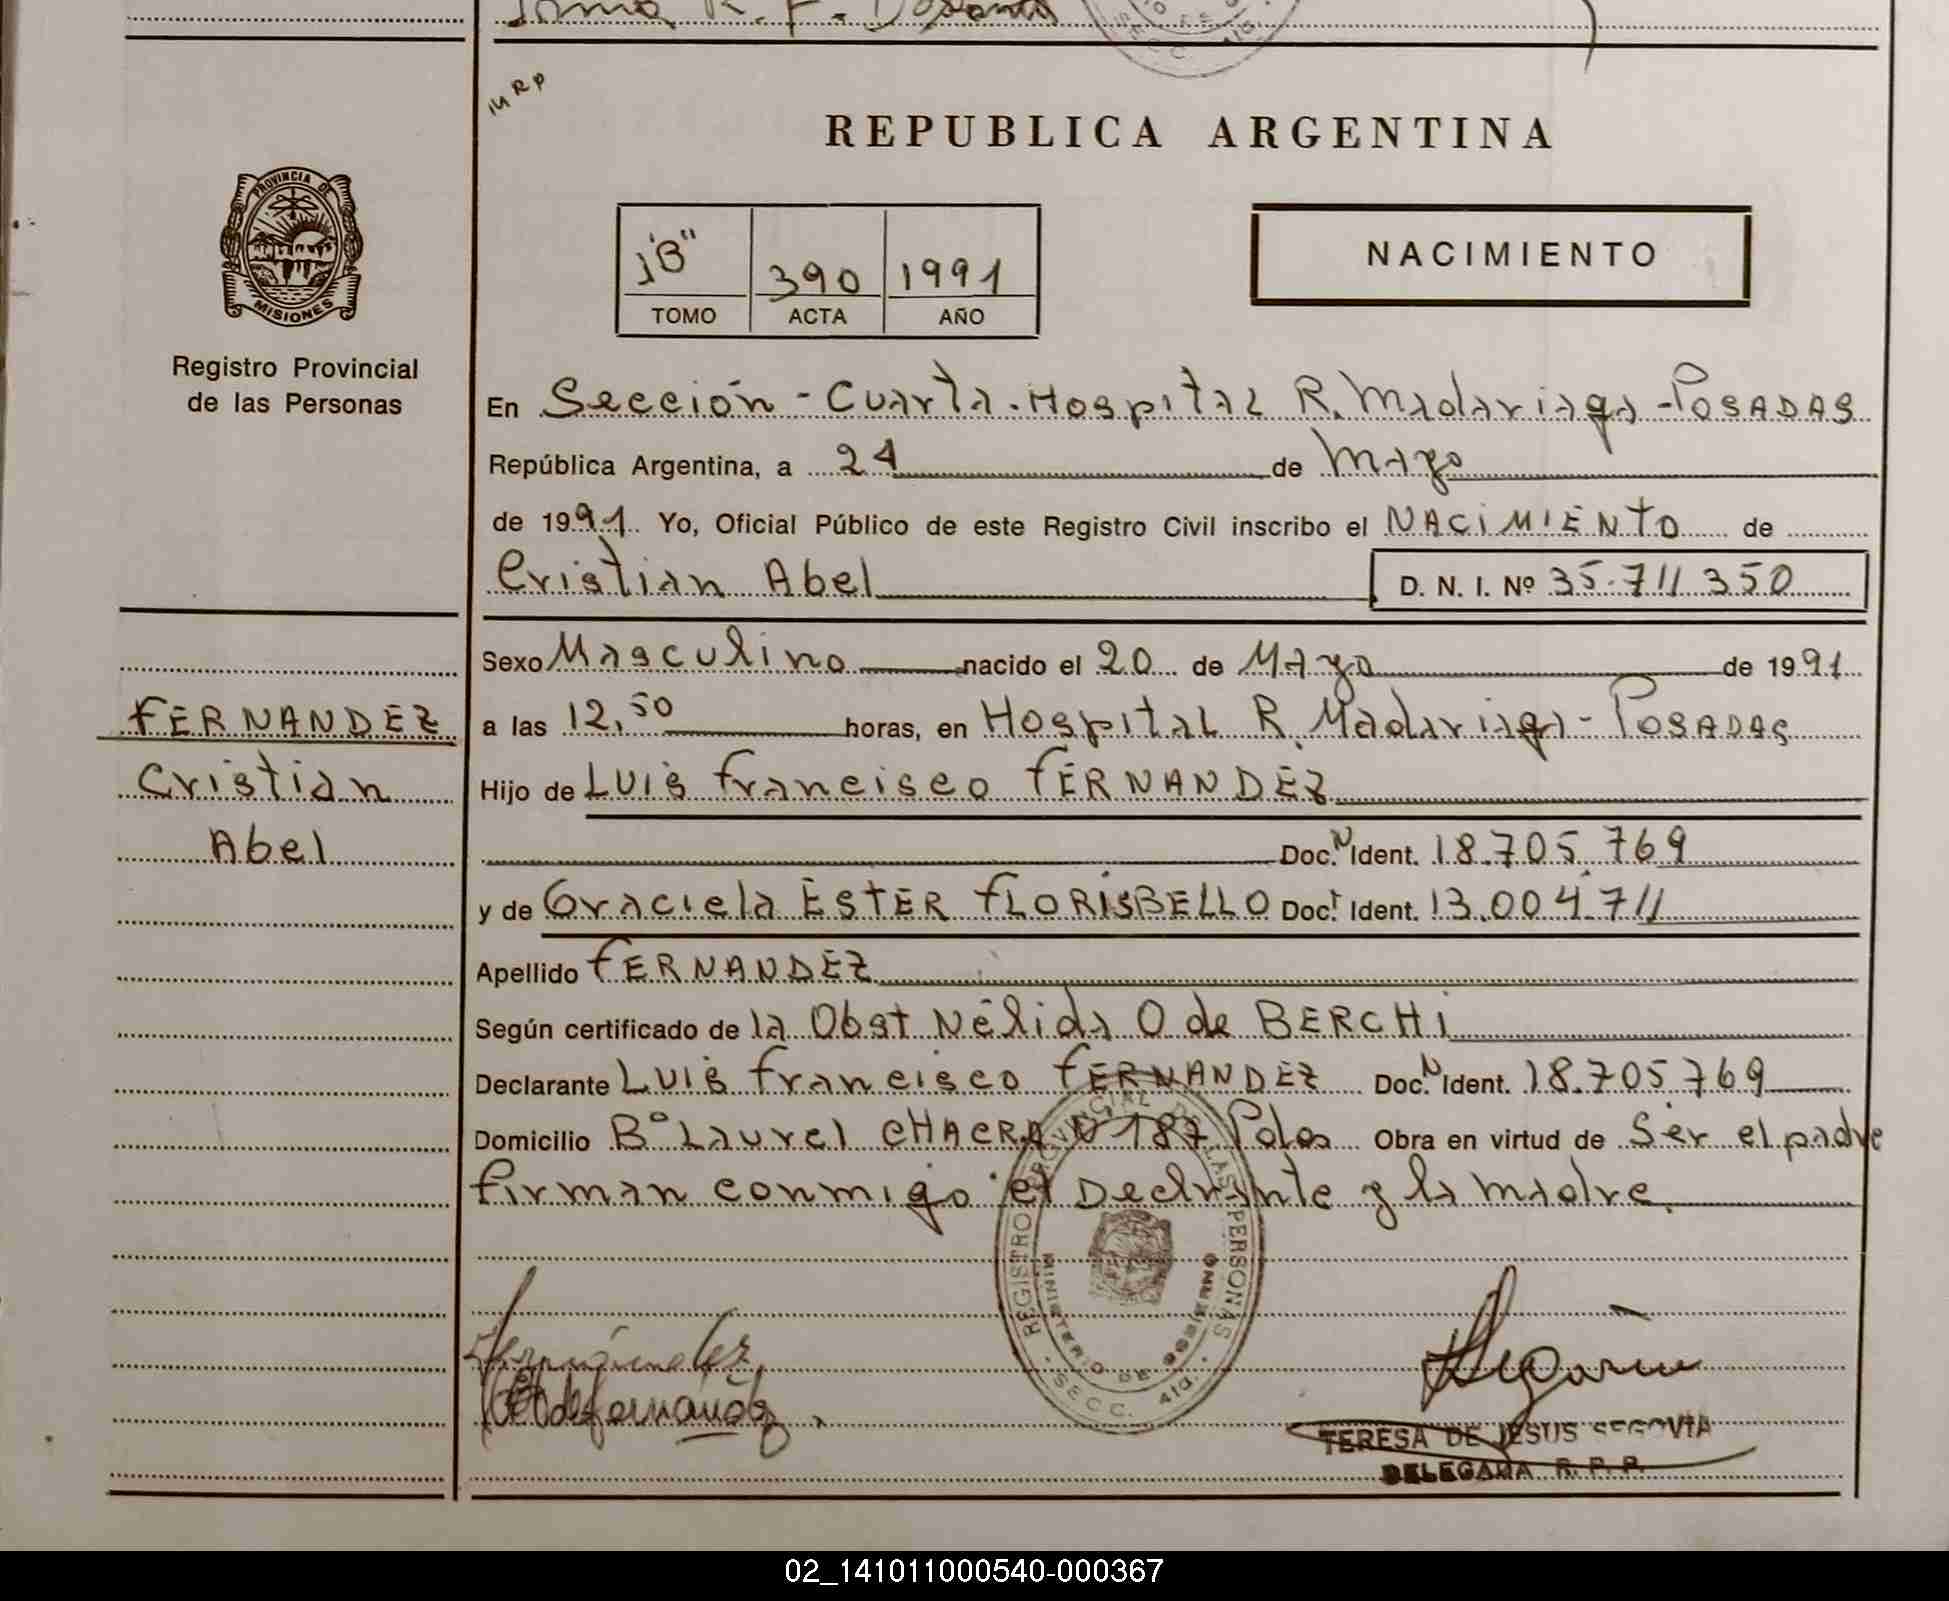 REPUBLICA ARGENTINA
PROVINCIA DE
MISIONES
Registro Provincial
de las Personas
1"B" 390 1991
TOMO ACTA AÑO
NACIMIENTO
En Sección - Cuarta - Hospital R. Madariaga - POSADAS
República Argentina, a 24 de Mayo
de 1991. Yo, Oficial Público de este Registro Civil inscribo el NACIMIENTO de
Cristian Abel D. N. I. Nº 35.711.350
Sexo Masculino nacido el 20 de Mayo de 1991
FERNANDEZ
Cristian
Abel
a las 12,50 horas, en Hospital R. Madariaga - POSADAS
Hijo de Luis Francisco FERNANDEZ
Doc. N Ident. 18.705.769
y de Graciela ESTER FLORISBELLO Doc. t Ident. 13.004.711
Apellido FERNANDEZ
Según certificado de la Obst Nélida O de BERCHI
Declarante Luis Francisco FERNANDEZ Doc. N Ident. 18.705.769
Domicilio Bº Laurel CHACRA 187 Pdas Obra en virtud de Ser el padre
firman conmigo el Declarante y la madre
REGISTRO PROVINCIAL DE LAS PERSONAS
MINISTERIO DE GOBIERNO
SECC. 4ta.
TERESA DE JESUS SEGOVIA
DELEGADA R. P. P.
02_141011000540-000367